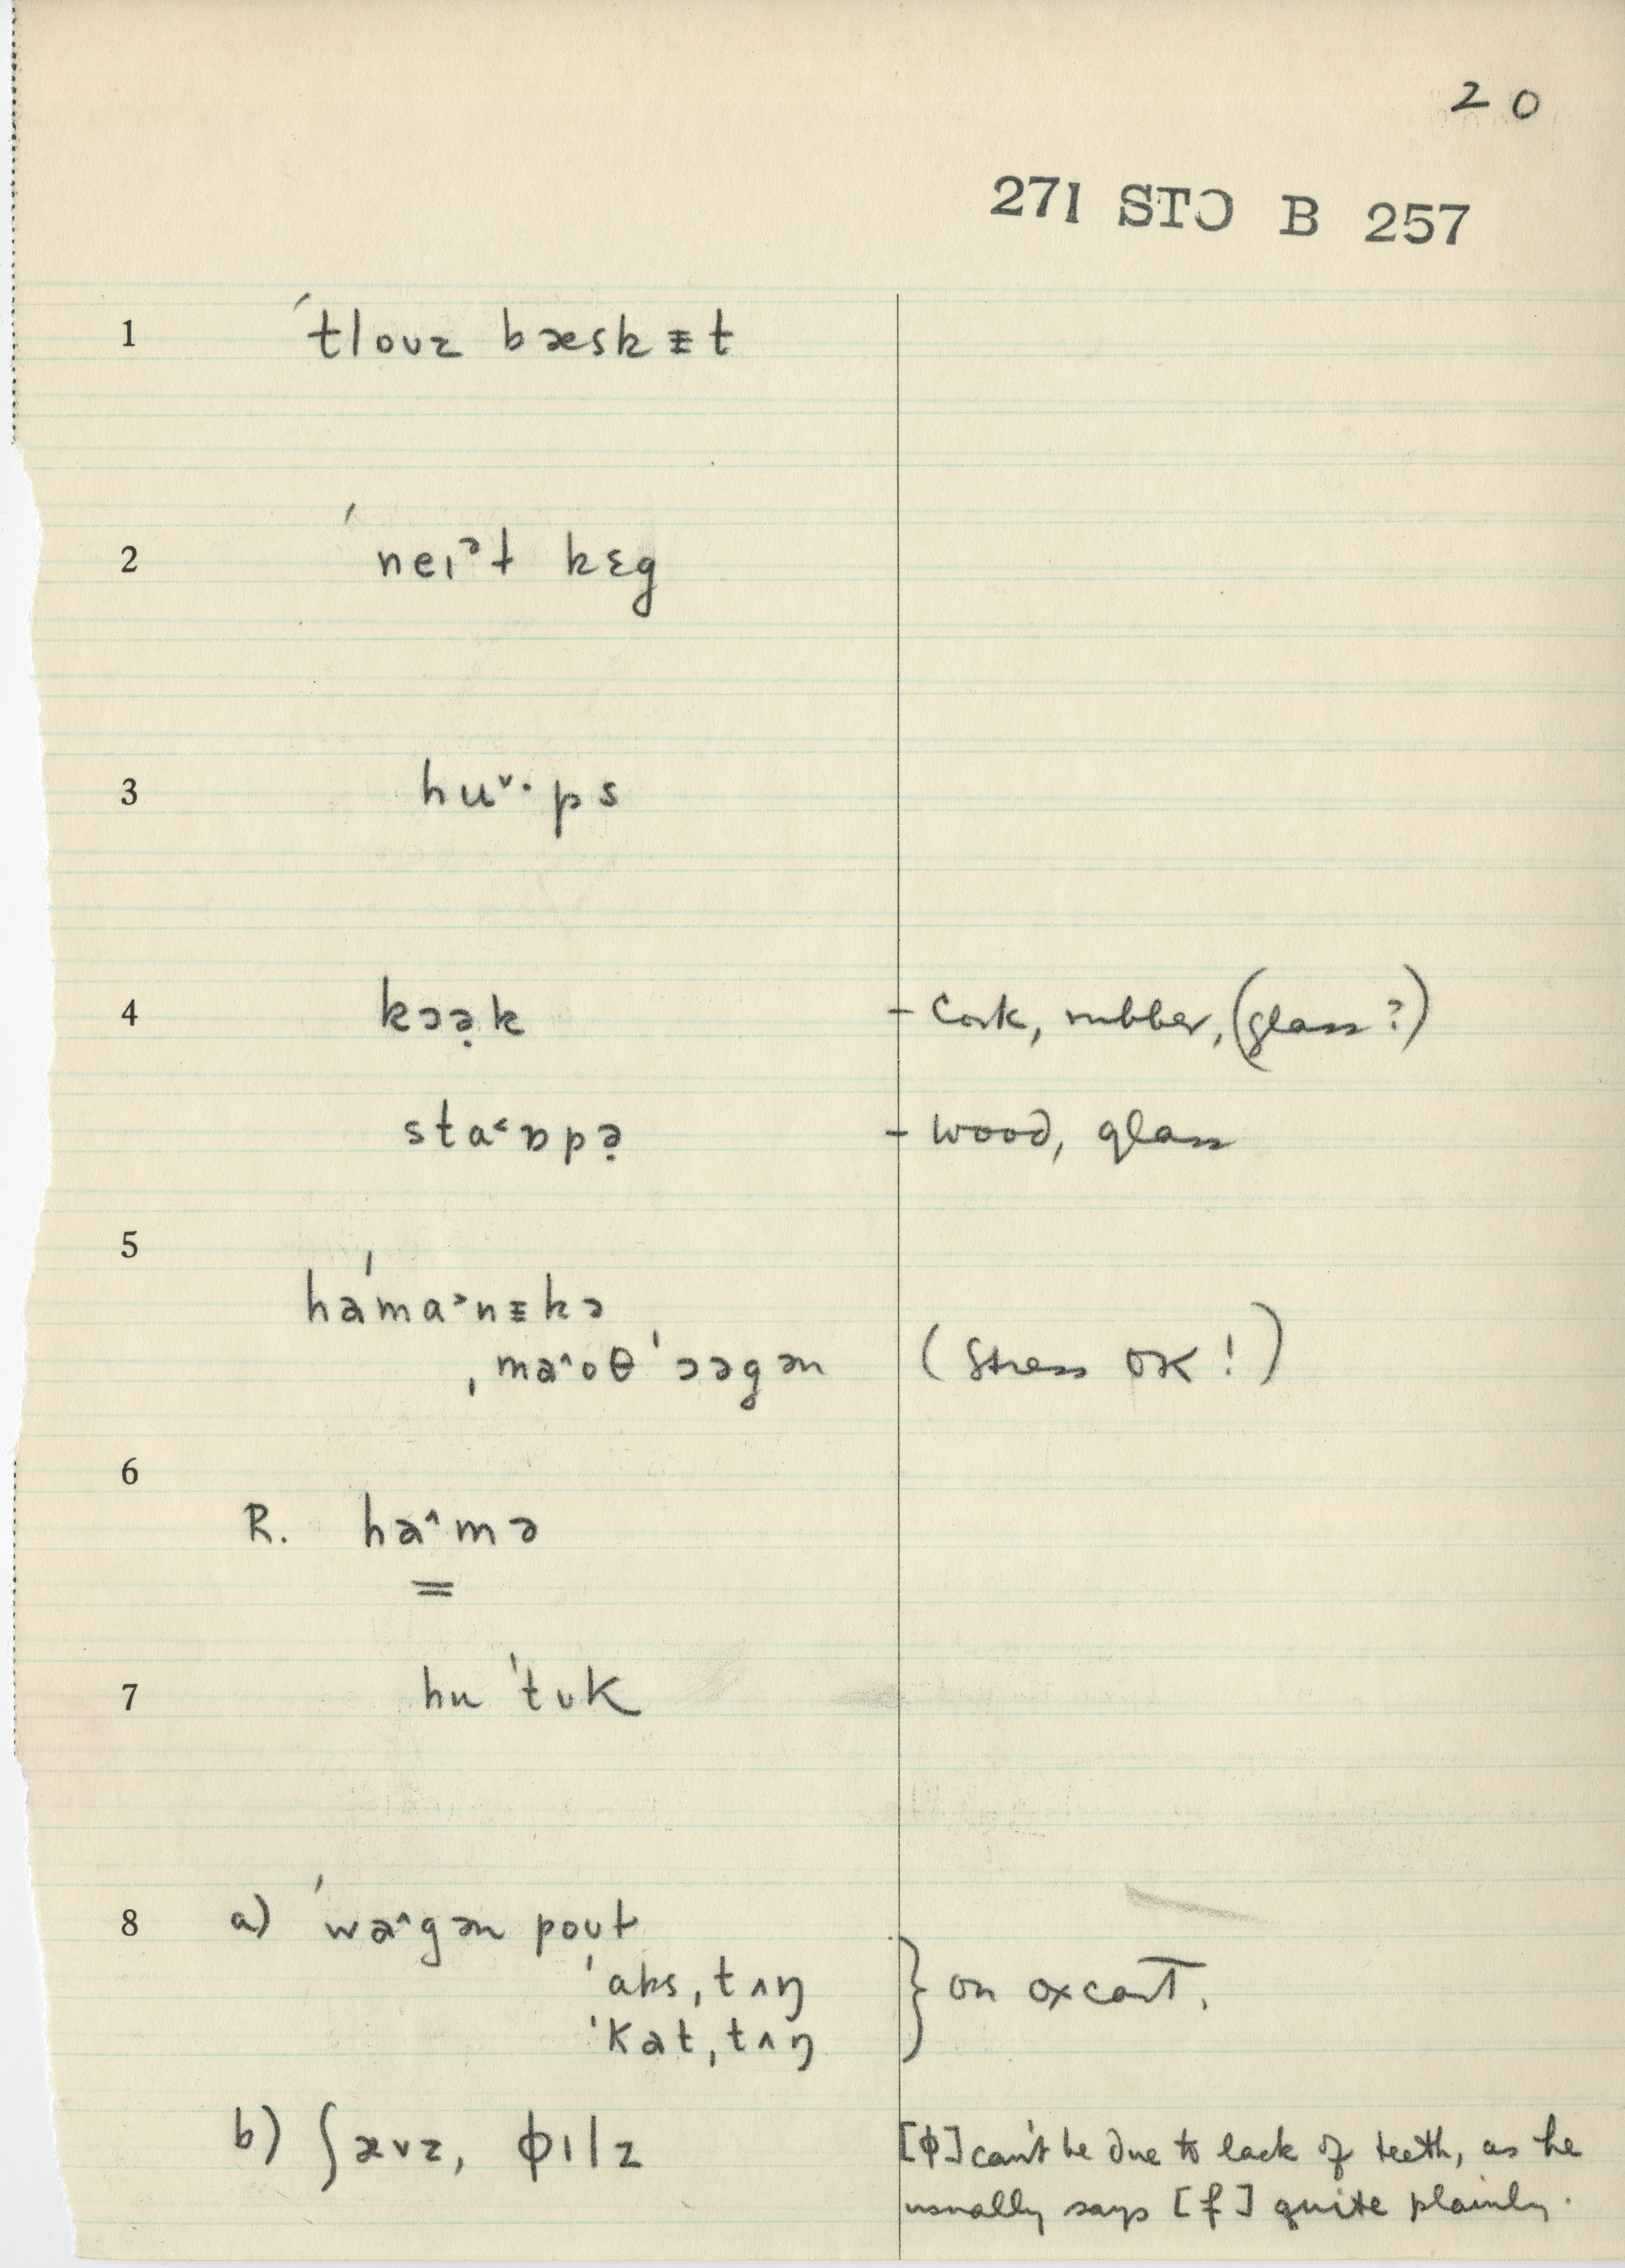 20
271 STↃ B 257
1 ˈtloʊz bæskᵻt
2 ˈneɪᵊt kɛg
3 huˇ·ps
4 kɔə̣k - Cork, rubber, (glass?)
sta˂ɒpə̣ - wood, glass
5
həˈma˃nᵻkə
ˌməˆoθˈɔəgən (Stress OK!)
6
R. haˆmə
=
7 huˈtʊk
8 a) ˈwaˆgən poʊt
ˈaksˌtʌŋ } on oxcart.
ˈkatˌtʌŋ
b) ʃævz, ɸɪlz [ɸ] can't be due to lack of teeth, as he
usually says [f] quite plainly.